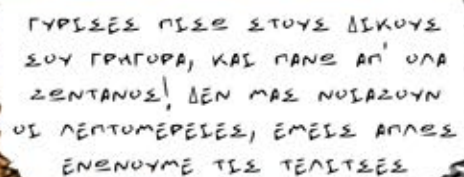 ΓΥΡΙΣΕΣ ΠΙΣΩ ΣΤΟΥΣ ΔΙΚΟΥΣ
ΣΟΥ ΓΡΗΓΟΡΑ, ΚΑΙ ΠΑΝΩ ΑΠ' ΟΛΑ
ΖΩΝΤΑΝΟΣ! ΔΕΝ ΜΑΣ ΝΟΙΑΖΟΥΝ
ΟΙ ΛΕΠΤΟΜΕΡΕΙΕΣ, ΕΜΕΙΣ ΑΠΛΩΣ
ΕΝΩΝΟΥΜΕ ΤΙΣ ΤΕΛΙΤΣΕΣ